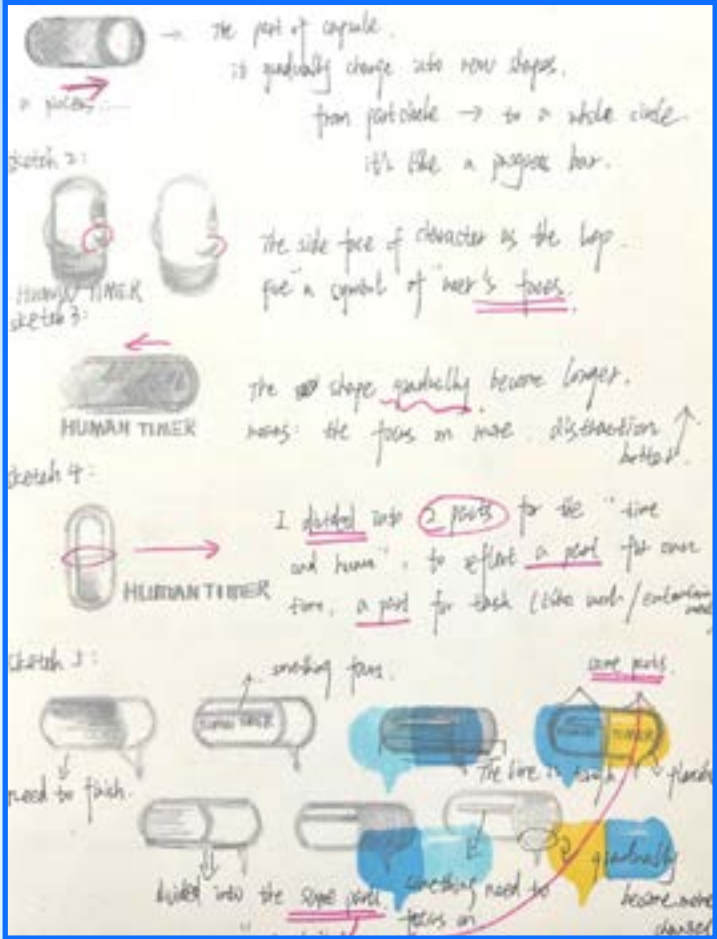 The part of capsule.
it gradually change into new shapes.
from part circle → to a whole circle.
it's like a progress bar.
a process......
sketch 2:
HUMAN TIMER
The side face of character as the
a symbol of "user's faces.
sketch 3:
HUMAN TIMER
The shape gradually become longer.
means: the focus on more. distraction
better.
sketch 4:
HUMAN TIMER
I divided into 2 parts for the "time
and human", to reflect a part for
time, a part for task (like work/
sketch 5:
something focus.
same parts.
HUMAN TIMER
HUMAN TIMER
need to finish.
The line is
divided into the same parts.
something need to
focus on
gradually
become more